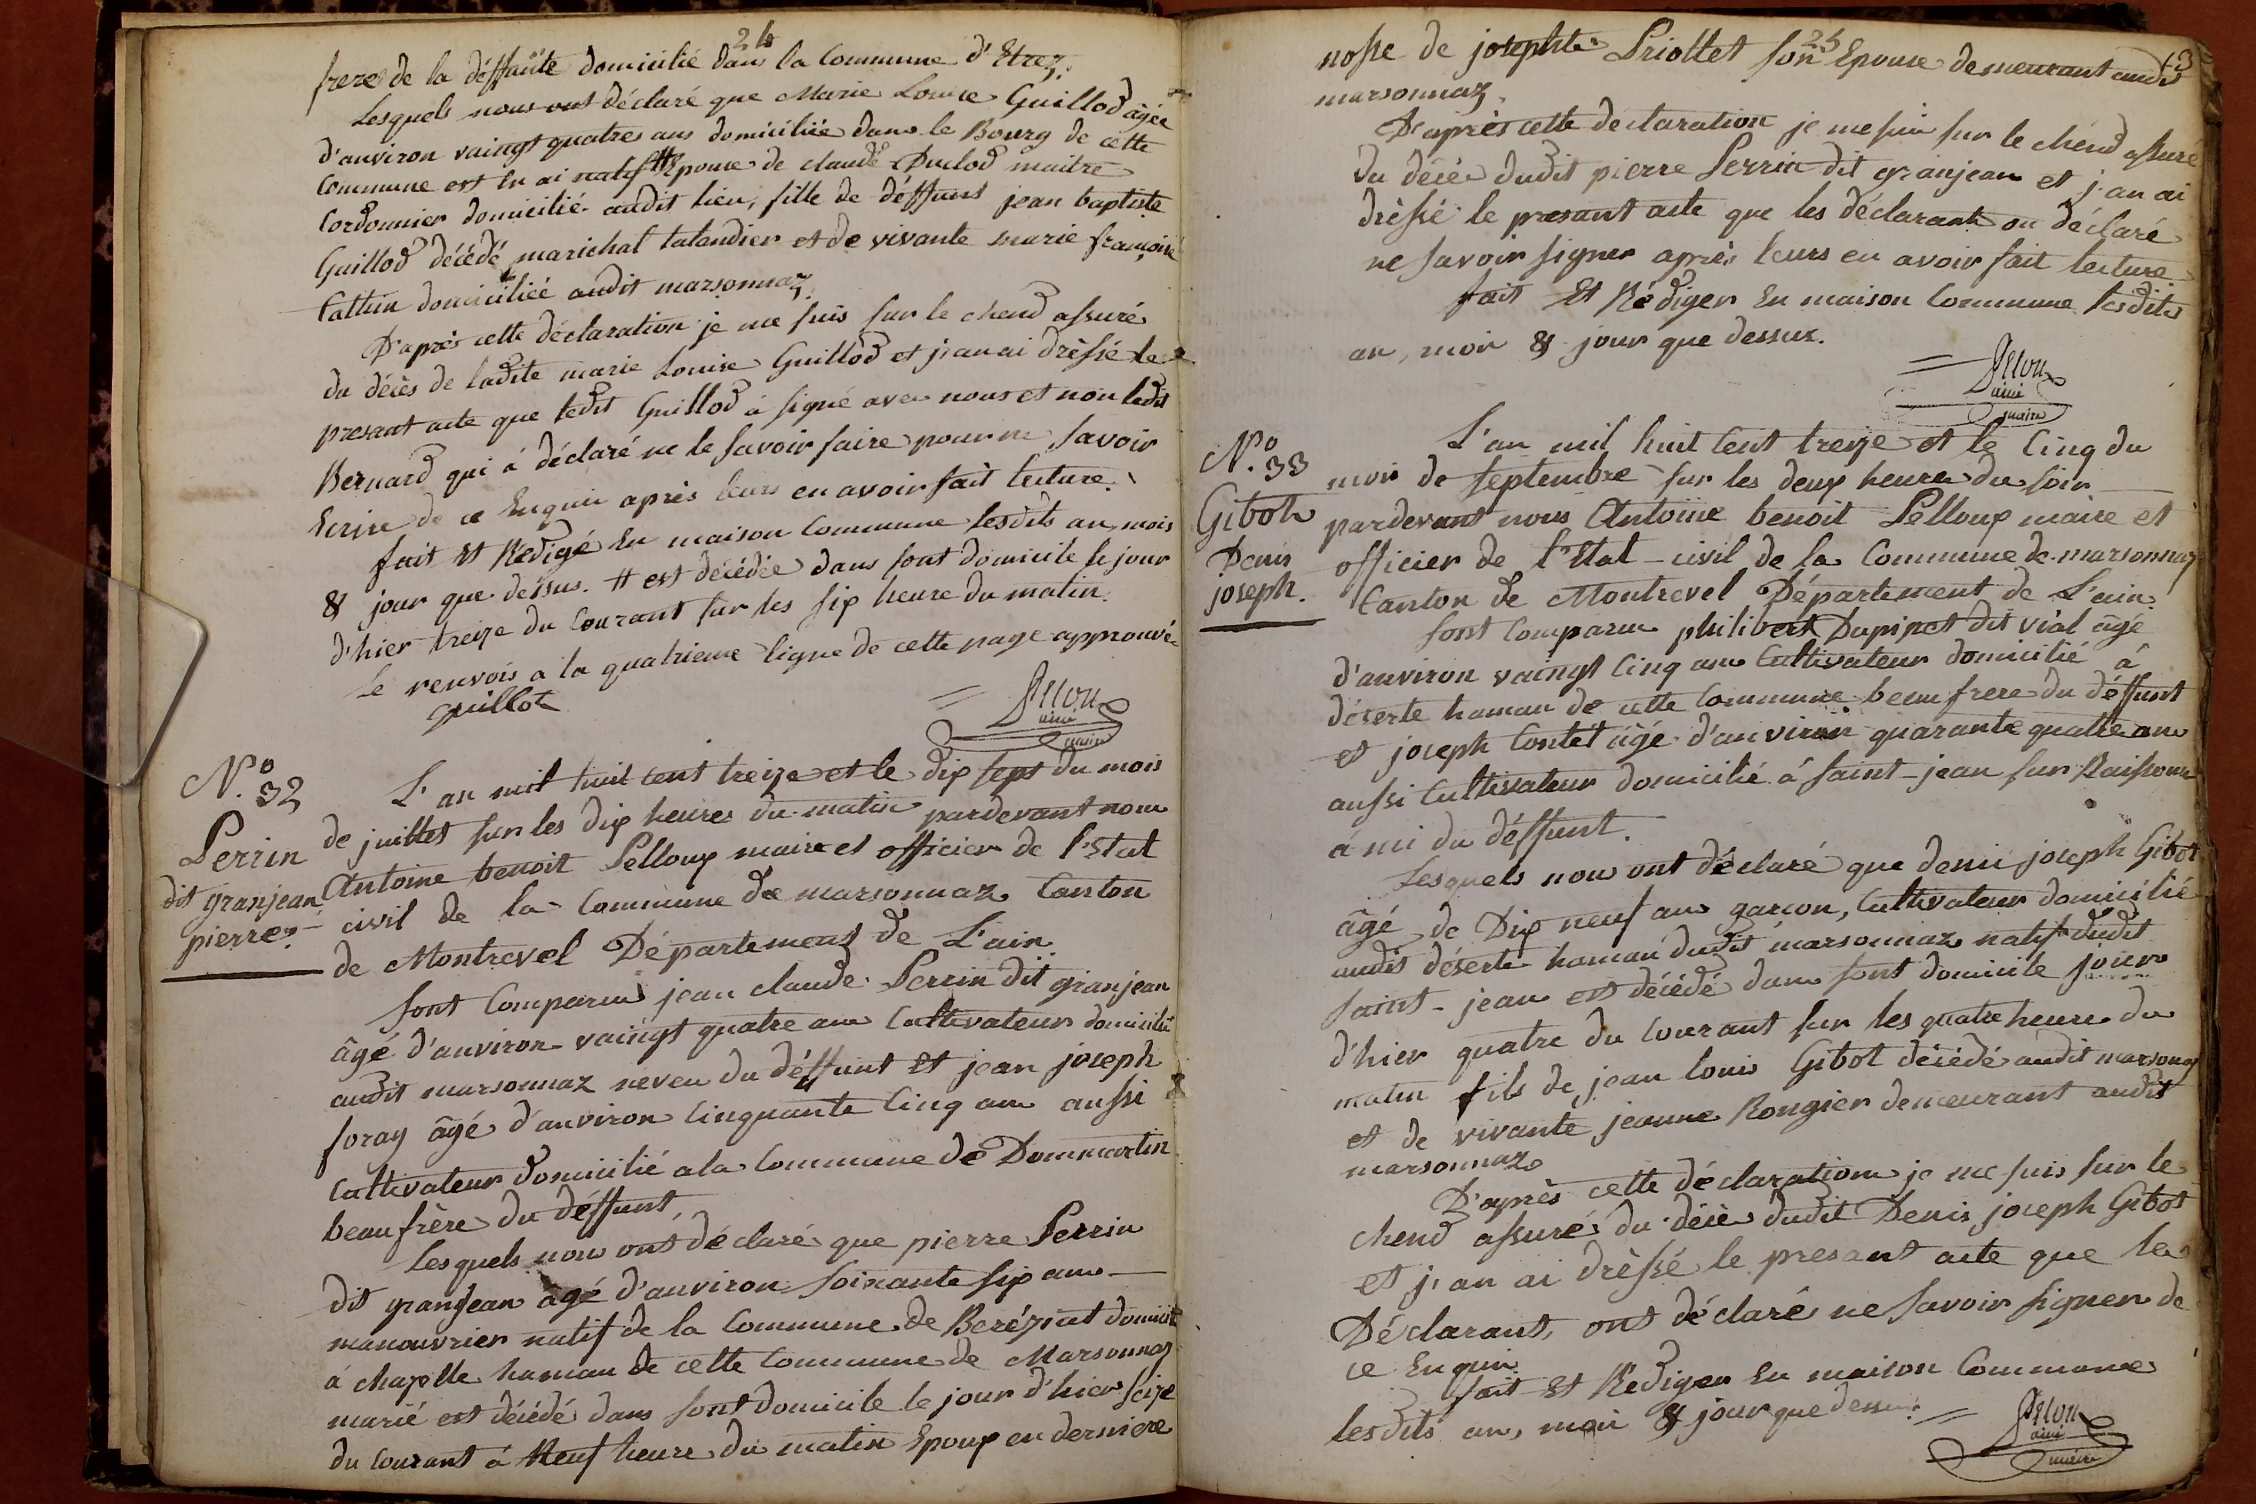 24
frere de la déffunte domicilié dans la Commune d'Etrez.
Lesquels nous ont déclaré que Marie Louise Guillod âgée
d'anviron vaingt quatres ans domiciliée dans le Bourg de cette
Commune est en ai natif # Epouse de claude Duclod maitre
Cordonnier domicilié audit lieu, fille de déffunt jean baptiste
Guillod décédé marichal talandier et de vivante marie françoise
Cattin domiciliée audit marsonnaz.
D'après cette déclaration je me suis sur le chend assuré
du décès de ladite marie Louise Guillod et j'an ai drèssé le
presant acte que ledit Guillod à signé avec nous et non ledit
Bernard qui à déclaré ne le savoir faire pour ne savoir
Ecrire de ce Enquir après leurs en avoir fait lecture.
fait Et Redigé En maison Commune lesdits an, mois
& jour que dessus. # est décédée dans sont domicile le jour
d'hier treize du Courant sur les six heure du matin.
Le renvois a la quatrieme ligne de cette page approuvé
guillot
maire
N.° 32
Perrin
dit granjean
pierre.
L'an mil huit cent treize et le dix sept du mois
de juillet sur les dix heures du matin pardevant nous
Antoine benoit Pelloux maire et officier de l'Etat
civil de la Commune de marsonnaz Canton
de Montrevel Département de L'ain
sont Comparus jean claude Perrin dit granjean
âgé d'anviron vaingt quatre ans Cultivateur domicilié
audit marsonnaz neveu du déffunt Et jean joseph
foray âgé d'anviron Cinquante Cinq ans aussi
Cultivateur domicilié a la Commune de Dommartin
beaufrère du déffunt,
Lesquels nous ont déclaré que pierre Perrin
dit granjean âgé d'anviron soixante six ans
manouvrier natif de la Commune de Beréziat domicilié
à chapelle hamau de cette Commune de Marsonnaz
marié est décédé dans sont domicile le jour d'hier seize
du Courant à Neuf heure du matin Epoux en derniere
25
nosse de josephte Priollet son Epouse demeurant audit
marsonnaz.
D'après cette déclaration je me suis sur le chend assuré
du décè dudit pierre Perrin dit granjean et j'an ai
drèssé le presant acte que les déclarants on déclaré
ne savoir signer après leurs en avoir fait lecture
fait Et Rédiger En maison Commune lesdits
an, moi & jour que dessus.
maire
N.° 33
Gibot
Denis
joseph.
L'an mil huit Cent treize et le Cinq du
mois de septembre sur les deux heures du soir
pardevant nous Antoine benoit Pelloux maire et
officier de l'Etat-civil de la Commune de marsonnaz
Canton de Montrevel Département de L'ain.
sont Comparus philibert Dupinet dit vial âgé
d'anviron vaingt Cinq ans Cultivateur domicilié à
déserte hamau de cette Commune beaufrere du déffunt
et joseph Contet âgé d'anviron quarante quatre ans
aussi Cultivateur domicilié à saint-jean sur Raissouse
à mi du déffunt.
Lesquels nous ont déclaré que denis joseph Gibot
âgé de Dix neuf ans garçon, Cultivateur domicilié
audit déserte hamau dudit marsonnaz natif dudit
saint-jean est décédé dans sont domicile jour
d'hier quatre du Courant sur les quatre heure du
matin fils de jean louis Gibot décédé audit marsonnaz
et de vivante jeanne Rongier demeurant audit
marsonnaz
D'après cette déclaration je me suis sur le
chend assuré du décè dudit Denis joseph Gibot
et j'an ai drèssé le presant acte que les
Déclarants, ont déclaré ne savoir signer de
ce Enquir
fait Et Rediger En maison Commune
lesdits an, moi & jour que dessus.
maire